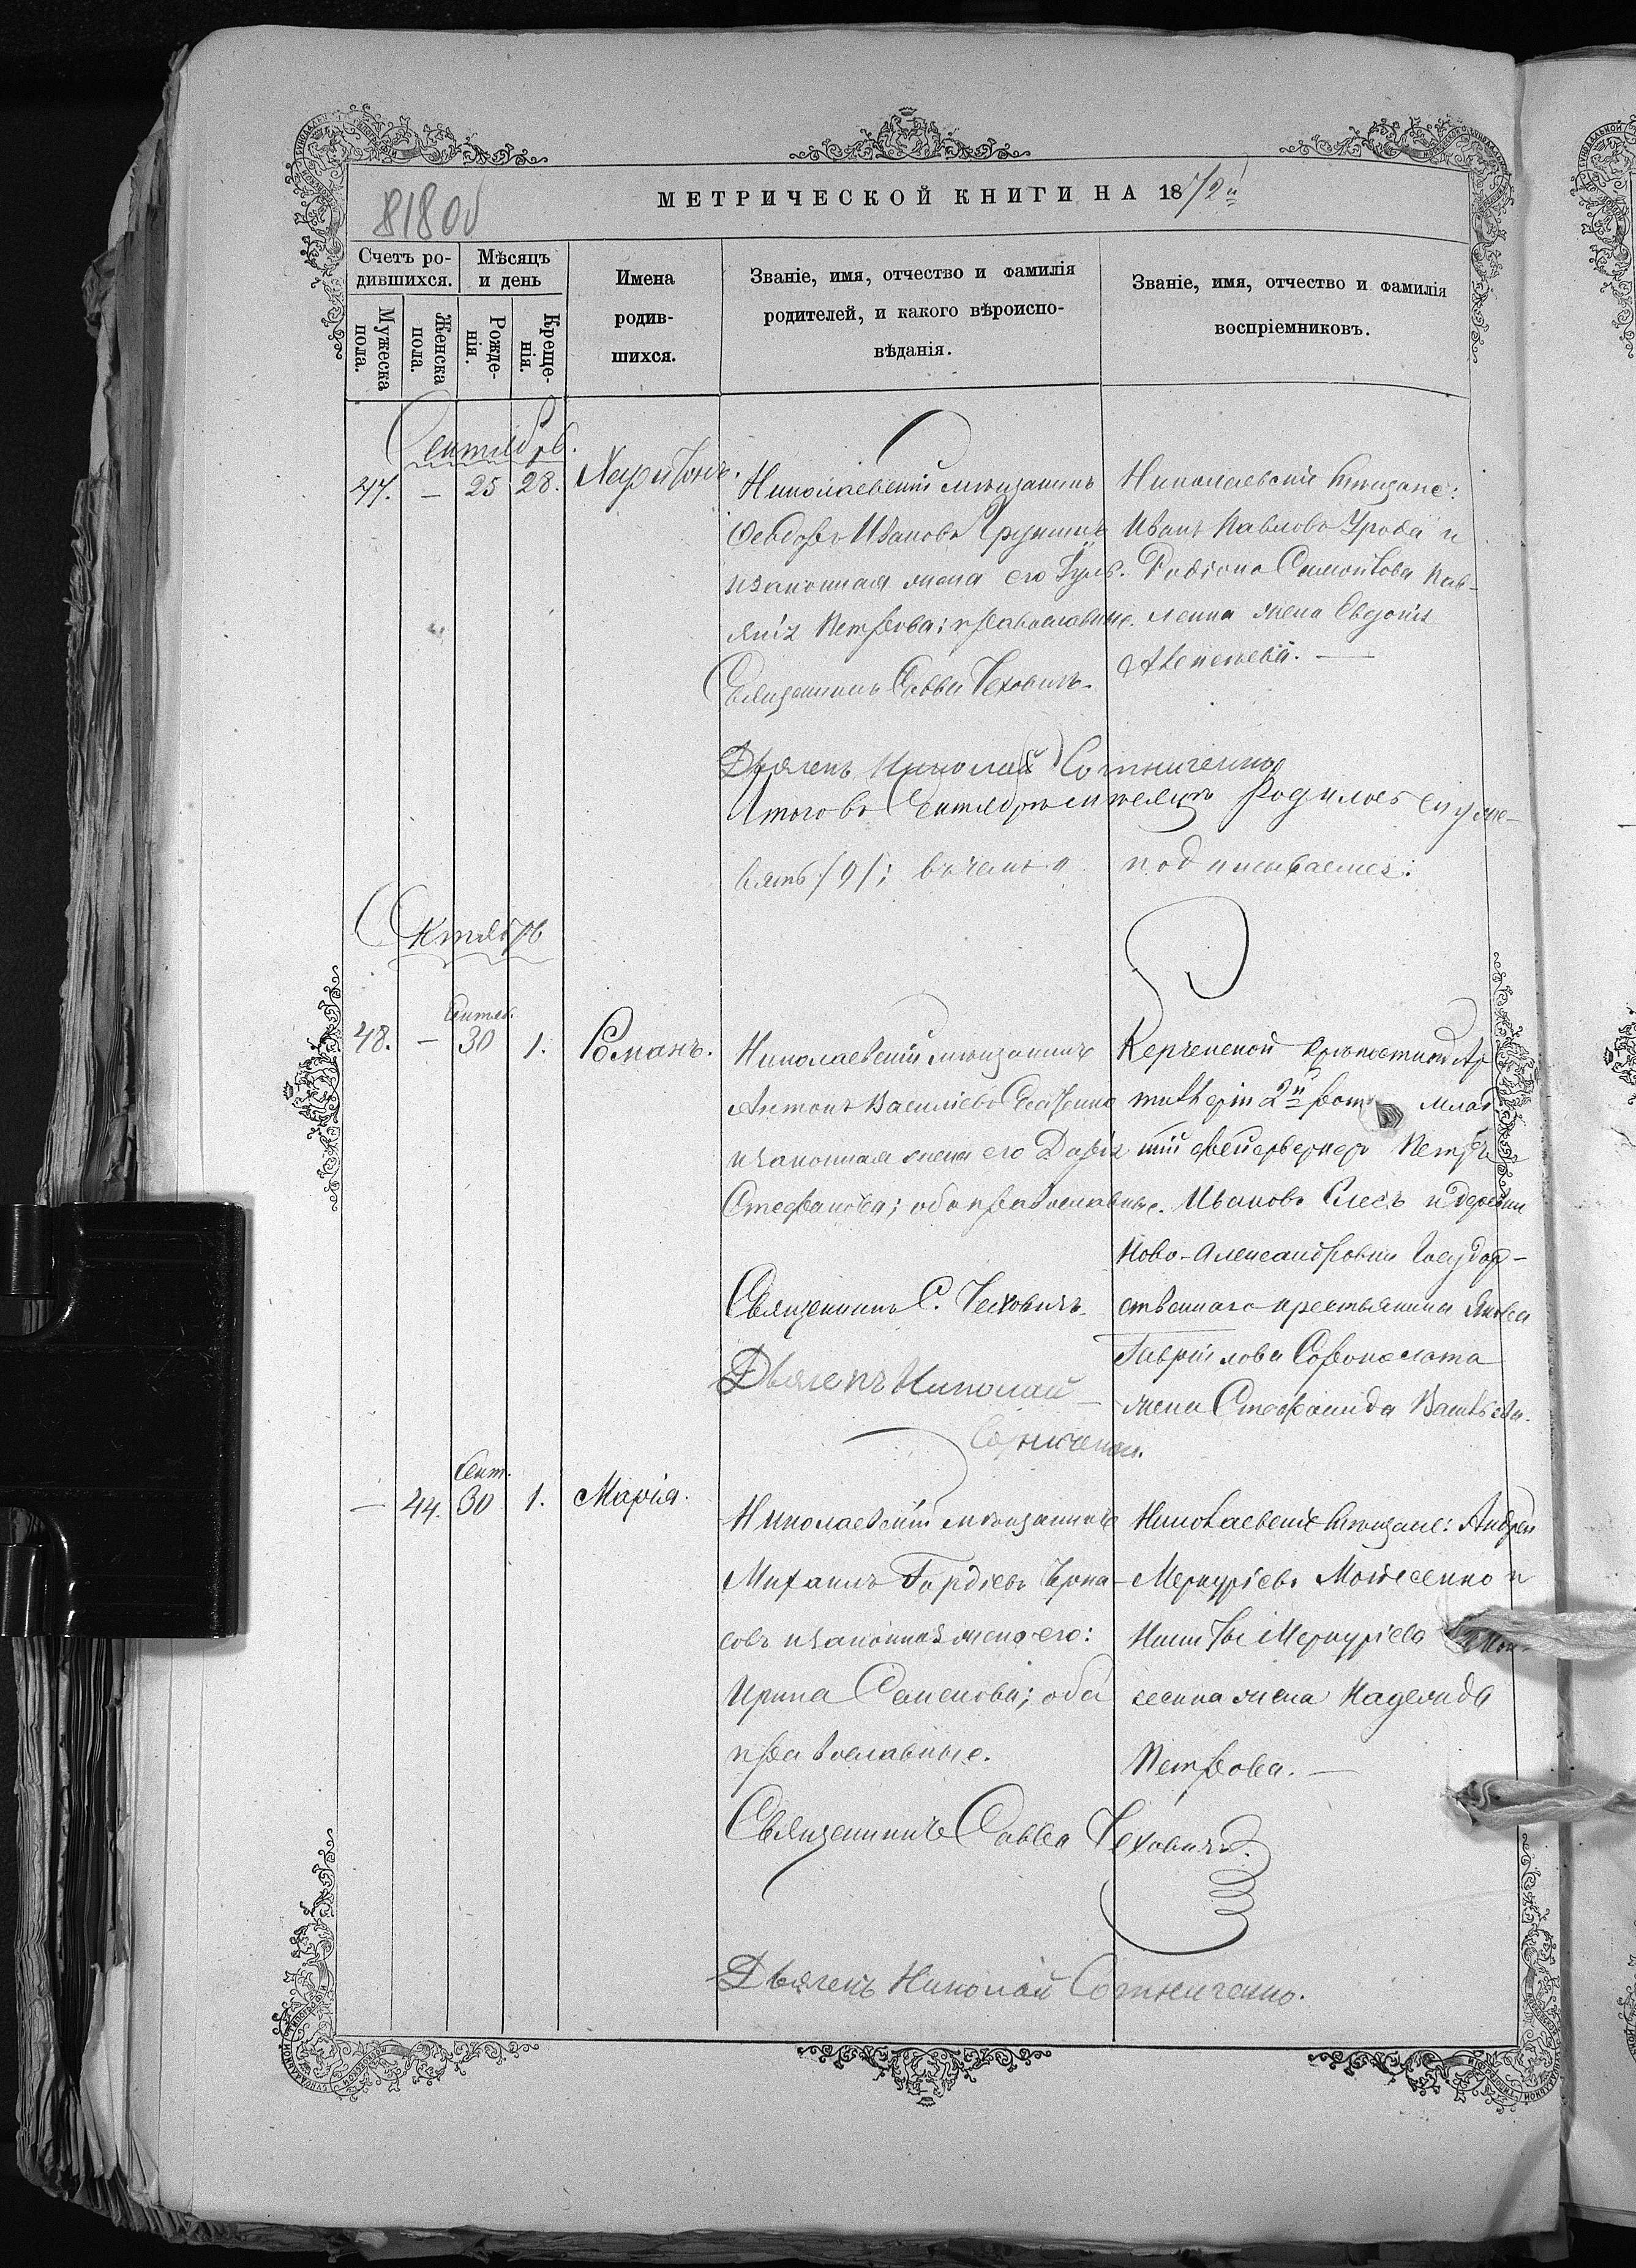 МЕТРИЧЕСКОЙ КНИГИ НА 1872й
818об
Счетъ ро-
дившихся.
Мужеска
пола.
Женска
пола.
Мѣсяцъ
и день
Рожде-
нія.
Креще-
нія.
Имена
родив-
шихся.
Званіе, имя, отчество и фамилія
родителей, и какого вѣроиспо-
вѣданія.
Званіе, имя, отчество и фамилія
воспріемниковъ.
Сентябрь.
47. — 25 28. Харитонъ.
Николаевскій мѣщанинъ
Ѳеодоръ Ивановъ
и законная жена его Іулі-
анія Петрова; православные.
Священникъ Савва Чеховичъ.
Дьячекъ Николай Сотниченко
Николаевскіе мѣщане:
Иванъ Павловъ и
Родіона Самойлова Пав-
ленка жена Евдокія
Алексѣева. —
Итого въ Сентябрѣ мѣсяцѣ родилось
вять /9/; въ чемъ и подписываемся:
Октябрь
Сентяб.
48. — 30 1. Романъ.
Николаевскій мѣщанинъ
Антонъ Василіевъ
и законная жена его Дарія
Стефанова; оба православные.
Священникъ С. Чеховичъ.
Дьячекъ Николай
Сотниченко.
Керченской крѣпостной Ар
тиллеріи 2й роты млад
шій фейерверкеръ Петръ
Ивановъ и деревни
Ново-Александровки Государ-
ственнаго крестьянина Якова
Гавріилова
жена Стефанида Васильева.
Сент.
— 44. 30 1. Марія.
Николаевскій мѣщанинъ
Михаилъ Гордіевъ
совъ и законная жена его:
Ирина Семенова; оба
православные.
Священникъ Савва Чеховичъ.
Дьячекъ Николай Сотниченко.
Николаевскіе мѣщане: Андрей
Меркуріевъ Моисеенко и
Никиты Меркуріева Мои-
сеенка жена Надежда
Петрова. —